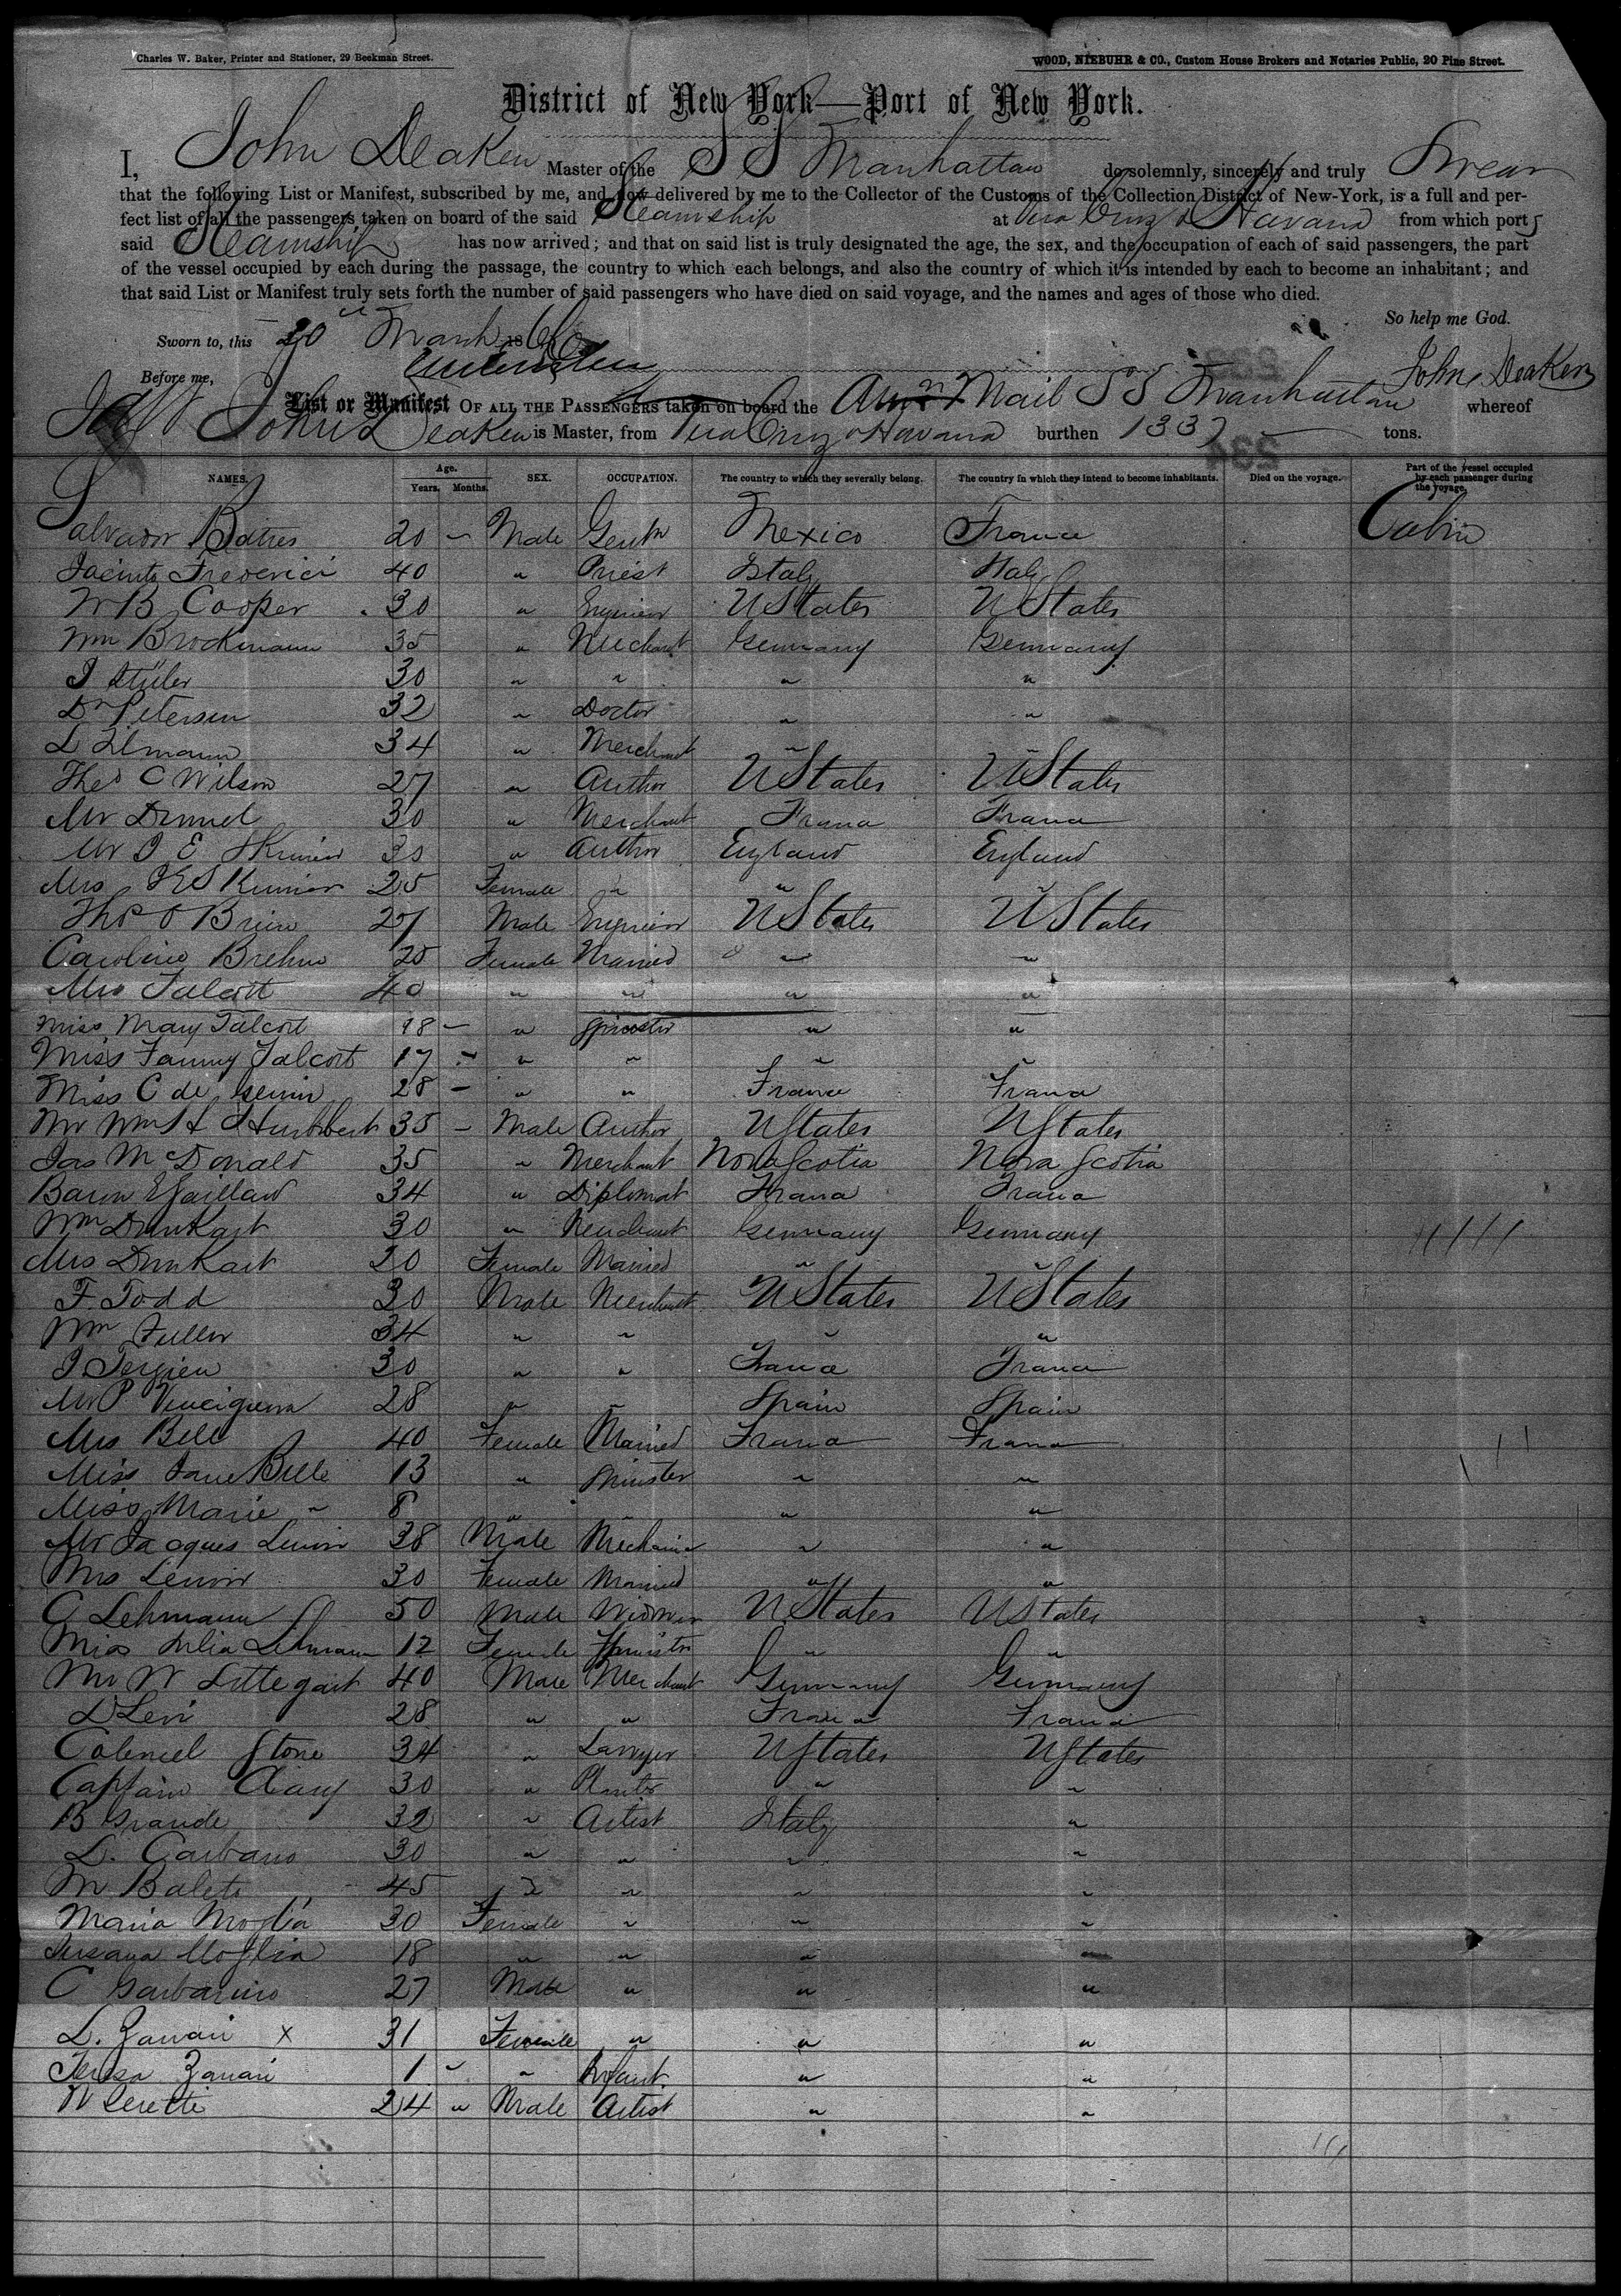 Charles W. Baker, Printer and Stationer, 29 Beekman Street.
WOOD, NIEBUHR & CO., Custom House Brokers and Notaries Public, 20 Pine Street.
District of New York—Port of New York.
I, John Deaken Master of the SS Manhattan do solemnly, sincerely and truly Swear
that the following List or Manifest, subscribed by me, and now delivered by me to the Collector of the Customs of the Collection District of New-York, is a full and per-
fect list of all the passengers taken on board of the said Steamship at Vera Cruz & Havana from which port s
said Steamship has now arrived; and that on said list is truly designated the age, the sex, and the occupation of each of said passengers, the part
of the vessel occupied by each during the passage, the country to which each belongs, and also the country of which it is intended by each to become an inhabitant; and
that said List or Manifest truly sets forth the number of said passengers who have died on said voyage, and the names and ages of those who died.
So help me God.
Sworn to, this 20th March 1866
Before me,
John Deaken
List or Manifest OF ALL THE PASSENGERS taken on board the Amn Mail SS Manhattan whereof
John Deaken is Master, from Vera Cruz & Havana burthen 1337 tons.
234
NAMES. Age. Years. Months. SEX. OCCUPATION. The country to which they severally belong. The country in which they intend to become inhabitants. Died on the voyage. Part of the vessel occupied by each passenger during the voyage.
Salvador Batres 20 - Male Gentn Mexico France Cabin
Jacinto Frederici 40 " Priest Italy Italy
W B Cooper 30 " Engineer U States U States
Wm Brockmann 35 " Merchant Germany Germany
J Stüler 30 " " " "
Dr Petersen 32 " Doctor " "
L Ilmann 34 " Merchant " "
Theo C Wilson 27 " Author U States U States
Mr 30 " Merchant France France
Mr J E Skinner 30 " Author England England
Mrs J E Skinner 25 Female " " "
Thos O Brien 27 Male Engineer U States U States
Caroline Brehme 25 Female Married " "
Mrs Talcott 40 " " " "
Miss Mary Talcott 18 - " Spinster " "
Miss Fanny Talcott 17 - " " " "
Miss C de 28 - " " France France
Mr Wm H Hurlbert 35 - Male Author U States U States
Jas McDonald 35 " Merchant Nova Scotia Nova Scotia
Baron E Gaillard 34 " Diplomat France France
Wm Drunkart 30 " Merchant Germany Germany
Mrs Drunkart 20 Female Married " "
F. Todd 30 Male Merchant U States U States
Wm Fuller 34 " " " "
J Tergien 30 " " France France
Mr P Vinciguerra 28 " " Spain Spain
Mrs Belle 40 Female Married France France
Miss Jane Belle 13 " Spinster " "
Miss Marie " 8 " " " "
Mr Jacques Lenoir 38 Male Mechanic " "
Mrs Lenoir 30 Female Married " "
C Lehmann 50 Male Widower U States U States
Miss Julia Lehmann 12 Female Spinster " "
Mr W Littegart 40 Male Merchant Germany Germany
D Levi 28 " " France France
Colonel Stone 34 " Lawyer U States U States
Captain 30 " Planter " "
B Grande 32 " Artist Italy "
L. Carbano 30 " " " "
M Balete 45 " " " "
Maria Moglia 30 Female " " "
Susana Moglia 18 " " " "
C Garbarino 27 Male " " "
L. Zanari x 31 Female " " "
Teresa Zanari 1 - " Infant " "
N Serette 24 " Male Artist " "